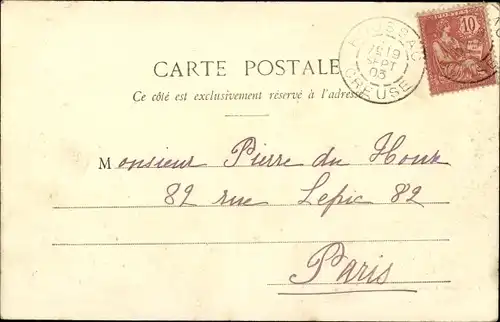 CARTE POSTALE
Ce côté est exclusivement réservé à l'adresse
CREUSE
19
SEPT
03
10
POSTES
Monsieur Pierre du Houx
82 rue Lepic 82
Paris